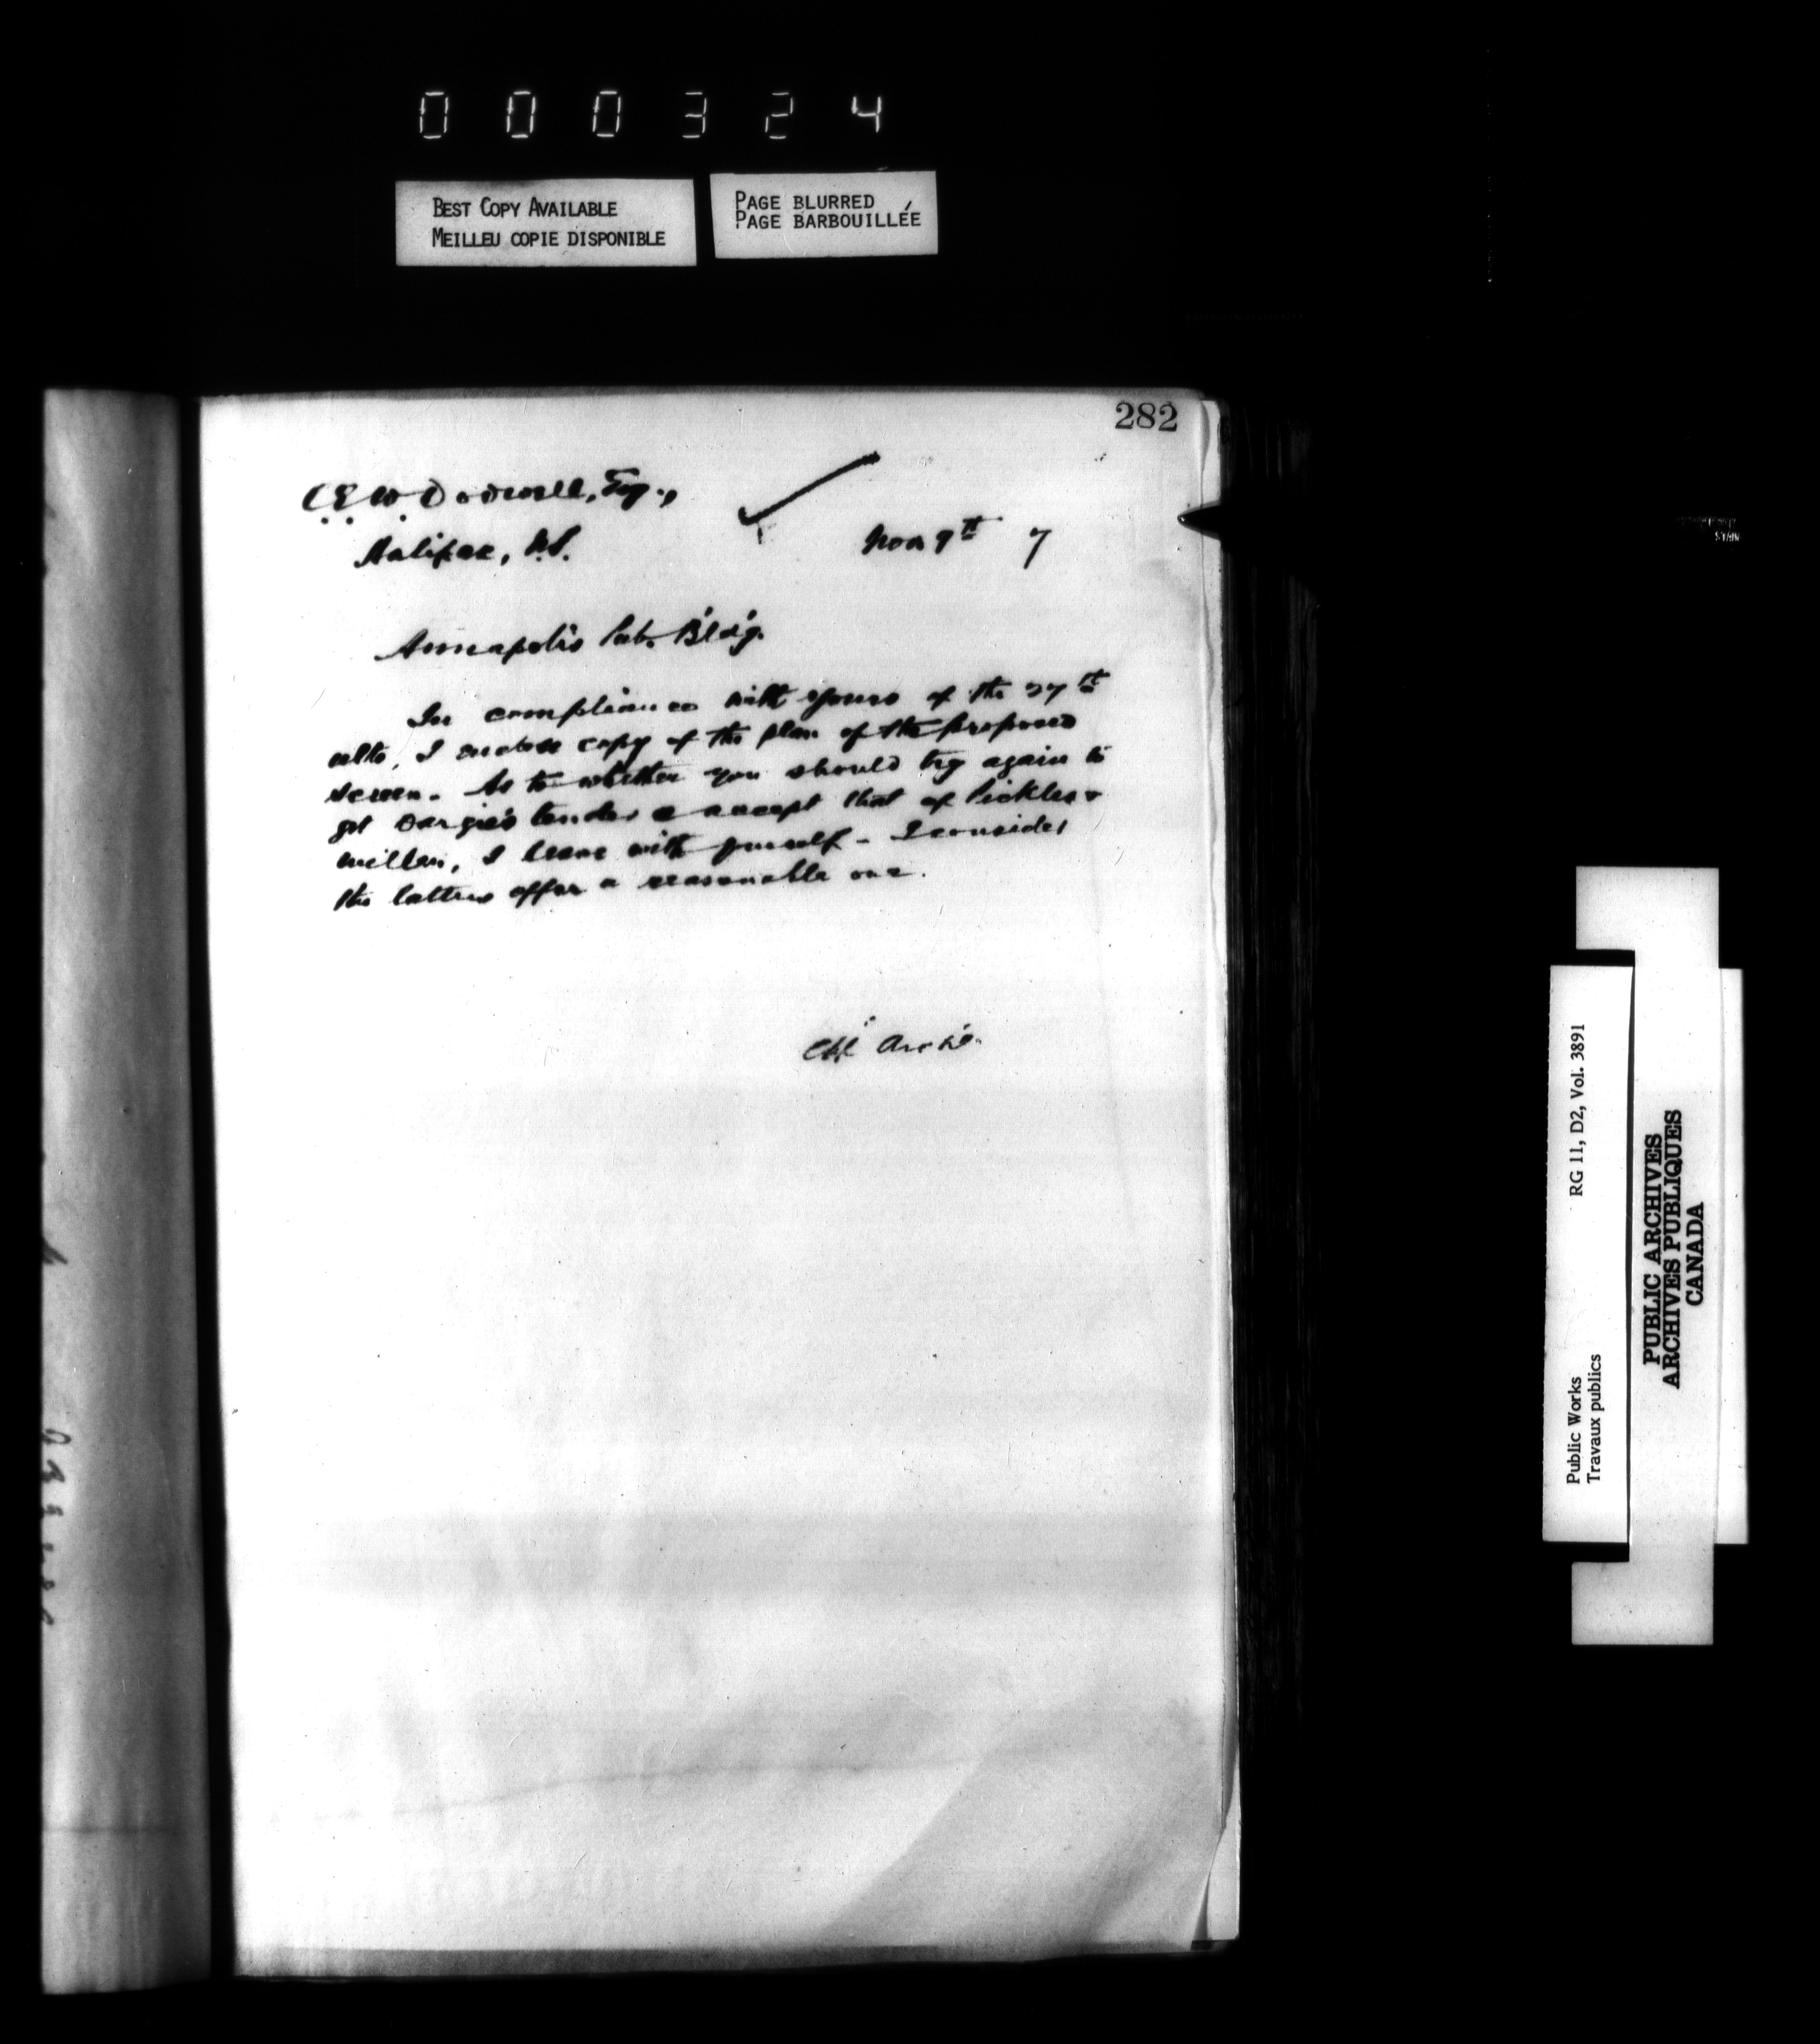 000324
BEST COPY AVAILABLE
MEILLEU COPIE DISPONIBLE
PAGE BLURRED
PAGE BARBOUILLÉE
282
C.E.W. Dodwell, Esq.,
Halifax, N.S.
Nov 9th 7
Annapolis Pub. B'ld'g.
In compliance with yours of the 27th
ulto, I enclose copy of the plan of the proposed
screen. As to whether you should try again to
get Dargie's tender & accept that of Pickles &
Millan, I leave with yourself - I consider
the latters offer a reasonable one.
Chf Archt.
Public Works
Travaux publics
RG 11, D2, Vol. 3891
PUBLIC ARCHIVES
ARCHIVES PUBLIQUES
CANADA